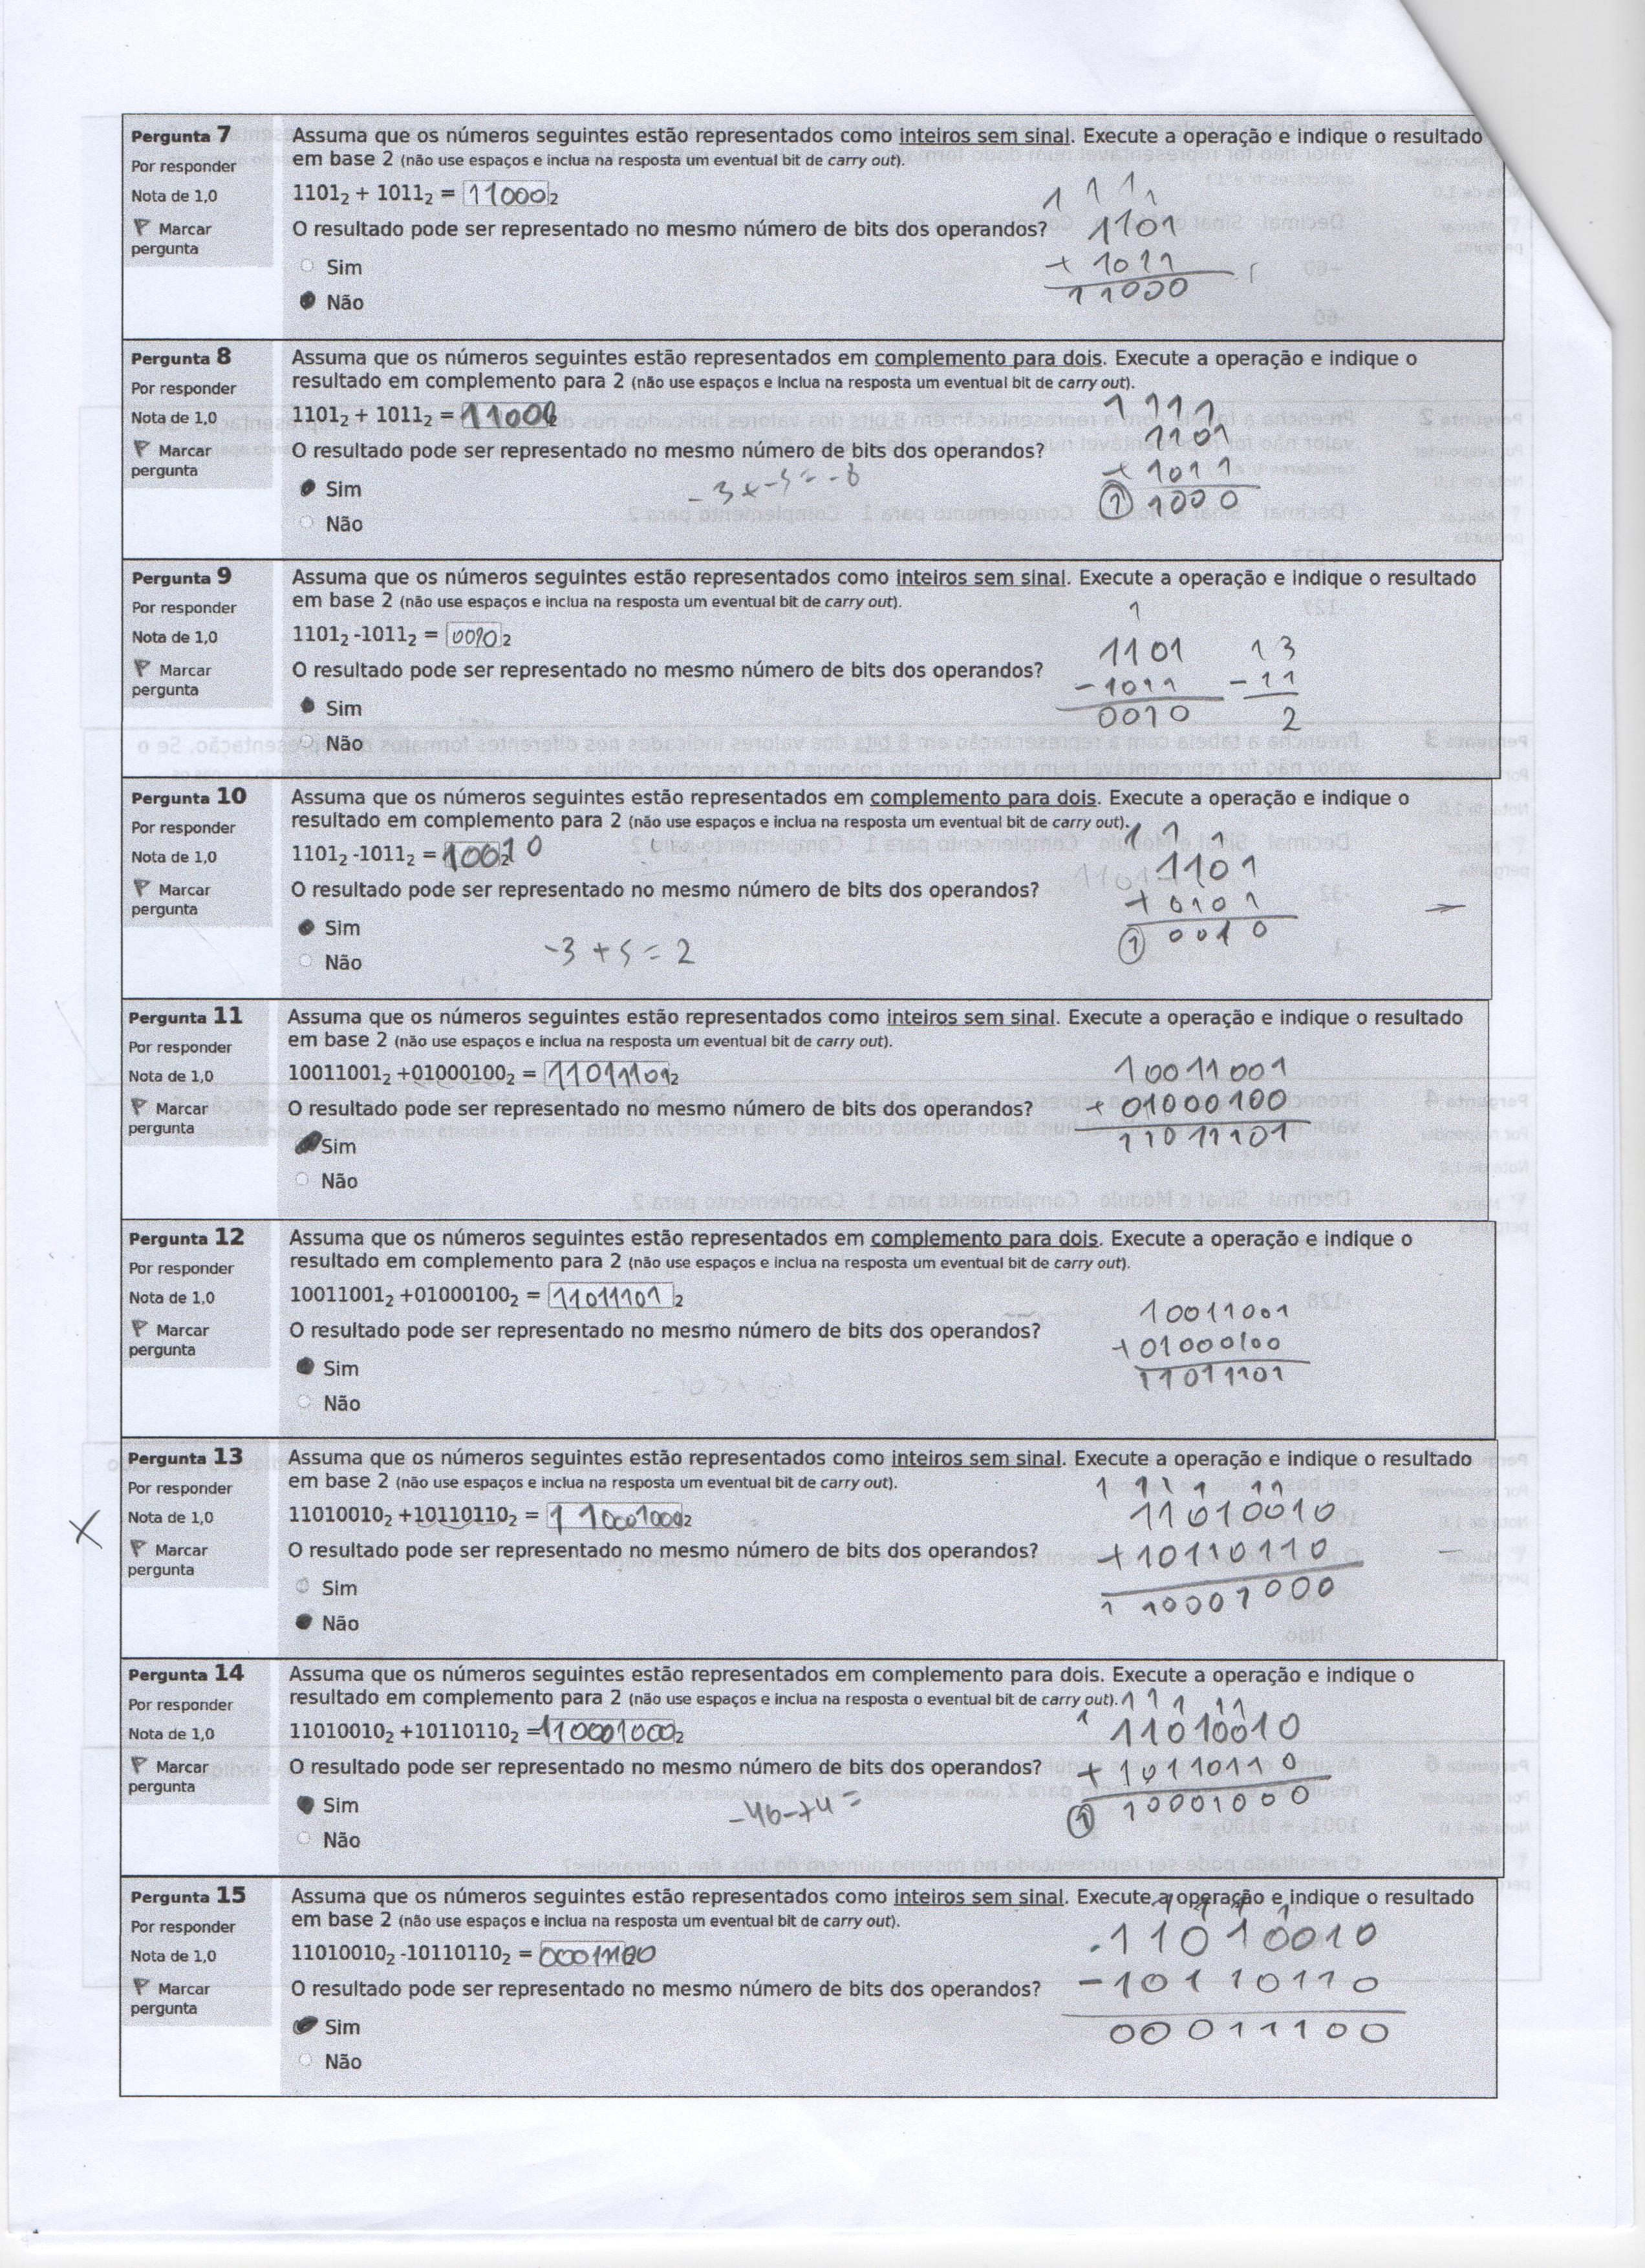 Pergunta 7
Por responder
Nota de 1,0
Marcar
pergunta
Assuma que os números seguintes estão representados como inteiros sem sinal. Execute a operação e indique o resultado
em base 2 (não use espaços e inclua na resposta um eventual bit de carry out).
1101₂ + 1011₂ = 11000₂
O resultado pode ser representado no mesmo número de bits dos operandos?
Sim
Não
1 1 1 1
1101
+ 1011
11000
Pergunta 8
Por responder
Nota de 1,0
Marcar
pergunta
Assuma que os números seguintes estão representados em complemento para dois. Execute a operação e indique o
resultado em complemento para 2 (não use espaços e inclua na resposta um eventual bit de carry out).
1101₂ + 1011₂ = 11000₂
O resultado pode ser representado no mesmo número de bits dos operandos?
Sim
Não
-3 + -5 = -8
1 1 1 1
1101
+ 1011
1 1000
Pergunta 9
Por responder
Nota de 1,0
Marcar
pergunta
Assuma que os números seguintes estão representados como inteiros sem sinal. Execute a operação e indique o resultado
em base 2 (não use espaços e inclua na resposta um eventual bit de carry out).
1101₂ -1011₂ = 0010₂
O resultado pode ser representado no mesmo número de bits dos operandos?
Sim
Não
1
1101
- 1011
0010
13
- 11
2
Pergunta 10
Por responder
Nota de 1,0
Marcar
pergunta
Assuma que os números seguintes estão representados em complemento para dois. Execute a operação e indique o
resultado em complemento para 2 (não use espaços e inclua na resposta um eventual bit de carry out).
1101₂ -1011₂ = 10010
O resultado pode ser representado no mesmo número de bits dos operandos?
Sim
Não
-3 + 5 = 2
1 1 1
1101
+ 0101
1 0010
Pergunta 11
Por responder
Nota de 1,0
Marcar
pergunta
Assuma que os números seguintes estão representados como inteiros sem sinal. Execute a operação e indique o resultado
em base 2 (não use espaços e inclua na resposta um eventual bit de carry out).
10011001₂ +01000100₂ = 11011101₂
O resultado pode ser representado no mesmo número de bits dos operandos?
Sim
Não
10011001
+ 01000100
11011101
Pergunta 12
Por responder
Nota de 1,0
Marcar
pergunta
Assuma que os números seguintes estão representados em complemento para dois. Execute a operação e indique o
resultado em complemento para 2 (não use espaços e inclua na resposta um eventual bit de carry out).
10011001₂ +01000100₂ = 11011101₂
O resultado pode ser representado no mesmo número de bits dos operandos?
Sim
Não
10011001
+ 01000100
11011101
X
Pergunta 13
Por responder
Nota de 1,0
Marcar
pergunta
Assuma que os números seguintes estão representados como inteiros sem sinal. Execute a operação e indique o resultado
em base 2 (não use espaços e inclua na resposta um eventual bit de carry out).
11010010₂ +10110110₂ = 110001000₂
O resultado pode ser representado no mesmo número de bits dos operandos?
Sim
Não
1 1 1 1 1 1
11010010
+ 10110110
1 10001000
Pergunta 14
Por responder
Nota de 1,0
Marcar
pergunta
Assuma que os números seguintes estão representados em complemento para dois. Execute a operação e indique o
resultado em complemento para 2 (não use espaços e inclua na resposta o eventual bit de carry out).
11010010₂ +10110110₂ = 110001000₂
O resultado pode ser representado no mesmo número de bits dos operandos?
Sim
Não
-46-74 =
1 1 1 1 1 1
11010010
+ 10110110
1 10001000
Pergunta 15
Por responder
Nota de 1,0
Marcar
pergunta
Assuma que os números seguintes estão representados como inteiros sem sinal. Execute a operação e indique o resultado
em base 2 (não use espaços e inclua na resposta um eventual bit de carry out).
11010010₂ -10110110₂ = 00011100
O resultado pode ser representado no mesmo número de bits dos operandos?
Sim
Não
1 1 1 1
11010010
- 10110110
00011100